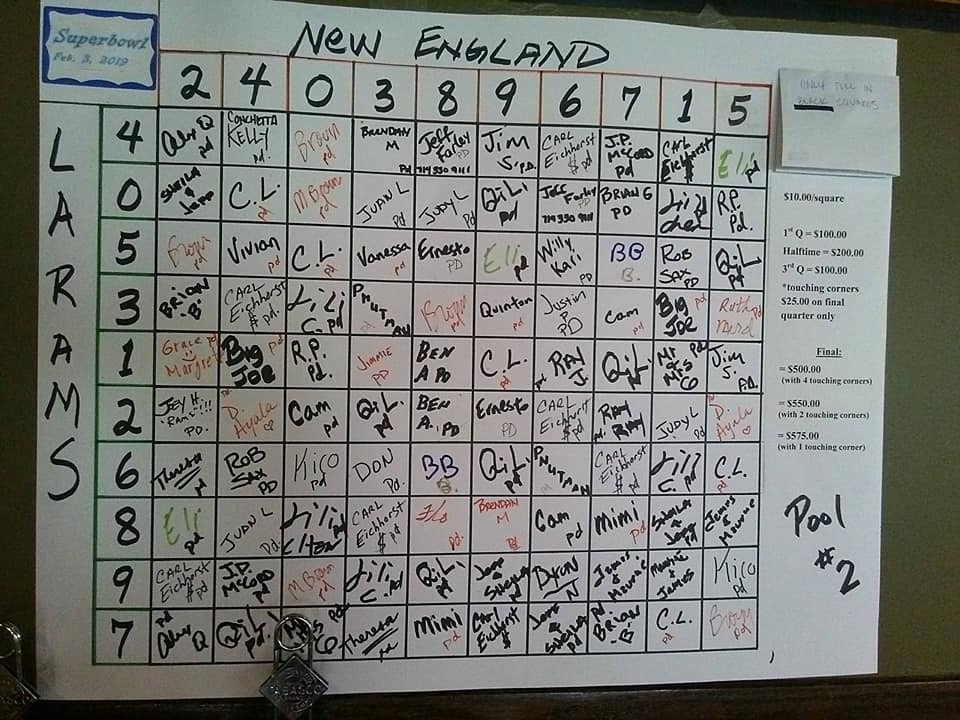 Superbowl
Feb. 3, 2019
NEW ENGLAND
2 4 0 3 8 9 6 7 1 5
LARAMS
4 Alex Q pd CONCHETTA KELLY pd. Brown pd BRENDAN M Pd Jeff Farley PD 714 330 9111 Jim S. P.D. CARL Eichhorst $ pd J.P. McCORD Pd CARL Eichhorst $ pd Eli pd
0 SHEILA & Jeff pd C.L. pd M Brown pd JUAN L Pd JUDY L Pd. QiLi pd Jeff Farley 714 330 9111 BRIAN G PD R.P. Pd.
5 Brown pd Vivian pd C.L. pd Vanessa pd Ernesto PD Eli pd Willy Kari PD BB B. ROB SAX PD QiL pd
3 BRIAN B. CARL Eichhorst $ pd. LiLi C. pd PNUTMAN Brown pd Quinton pd Justin P PD Cam pd BIG JOE pd Ruth pd
1 Grace pd Margret BIG JOE pd R.P. Pd. Jimmie PD BEN A PD C.L. pd RAY J. pd QiL Mr & Mrs G Pd Jim S. P.D.
2 JOEY H. "Rams"!!! PD. D. Ayala Cam pd QiL. pd BEN A., PD Ernesto PD CARL Eichhorst $ pd RAY JUDY L Pd D. Ayala
6 Theresa pd ROB SAX PD Kico pd DON Pd BB B. QiL pd PNUTMAN CARL Eichhorst $ pd LiLi C. pd C.L. pd
8 Eli pd JUAN L Pd. LiLi pd CARL Eichhorst $ pd Flo pd. BRENDAN M Pd Cam pd Mimi pd SHEILA & Jeff pd James & Mourine
9 CARL Eichhorst $ pd J.P. McCORD Pd M Brown pd LiLi C. pd QiLi pd Jeff & Sheila pd BYRON N James & Mourine James Kico pd
7 pd Alex Q QiL pd. Mrs G pd Theresa pd Mimi pd CARL Eichhorst $ Jeff & Sheila pd Pd BRIAN B C.L. pd Brown pd
ONLY FILL IN
BLACK SQUARES
$10.00/square
1st Q = $100.00
Halftime = $200.00
3rd Q = $100.00
*touching corners
$25.00 on final
quarter only
Final:
= $500.00
(with 4 touching corners)
= $550.00
(with 2 touching corners)
= $575.00
(with 1 touching corner)
Pool
#2
TABASCO